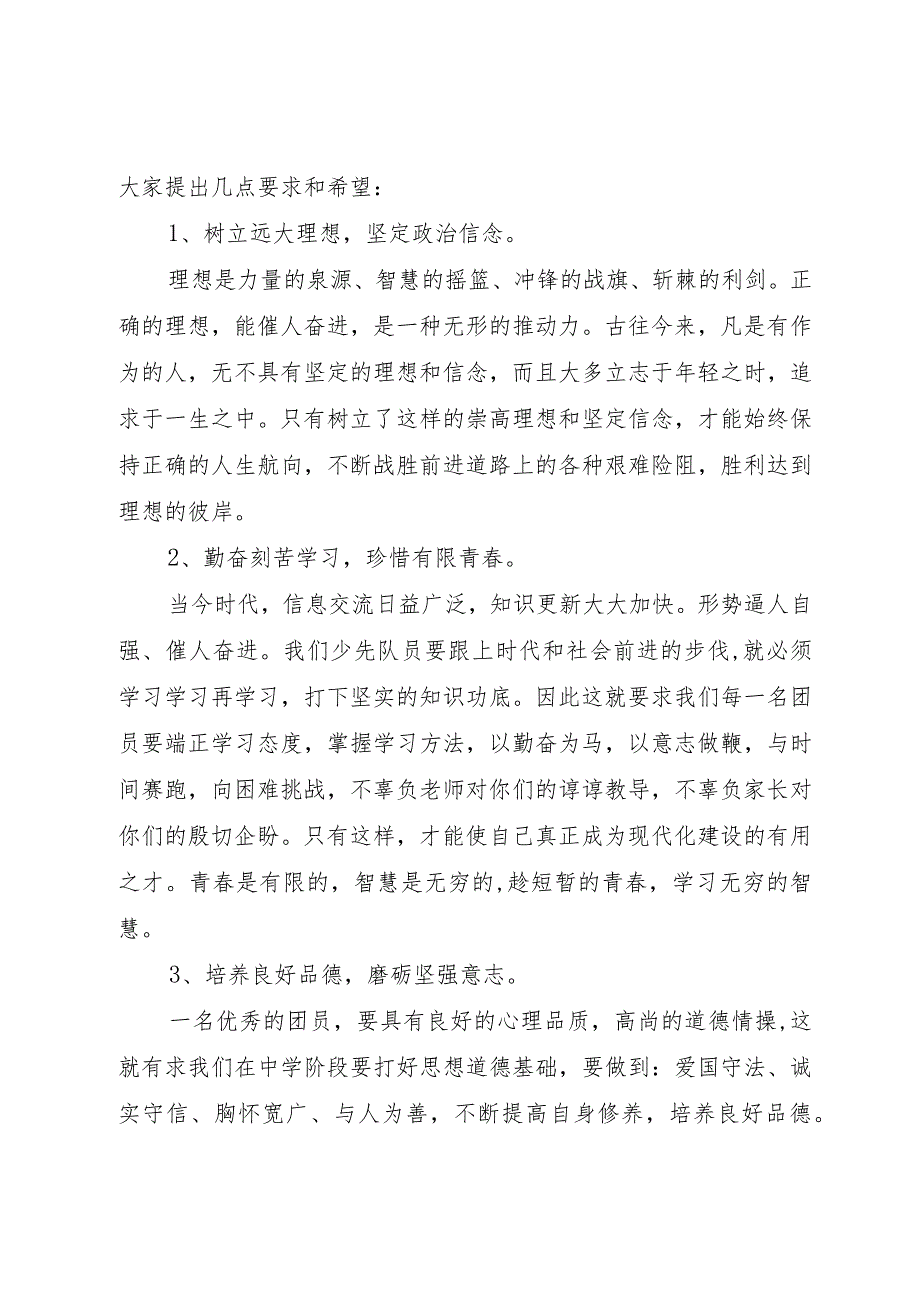 大家提出几点要求和希望：
1、树立远大理想，坚定政治信念。
理想是力量的泉源、智慧的摇篮、冲锋的战旗、斩棘的利剑。正
确的理想，能催人奋进，是一种无形的推动力。古往今来，凡是有作
为的人，无不具有坚定的理想和信念，而且大多立志于年轻之时，追
求于一生之中。只有树立了这样的崇高理想和坚定信念，才能始终保
持正确的人生航向，不断战胜前进道路上的各种艰难险阻，胜利达到
理想的彼岸。
2、勤奋刻苦学习，珍惜有限青春。
当今时代，信息交流日益广泛，知识更新大大加快。形势逼人自
强、催人奋进。我们少先队员要跟上时代和社会前进的步伐,就必须
学习学习再学习，打下坚实的知识功底。因此这就要求我们每一名团
员要端正学习态度，掌握学习方法，以勤奋为马，以意志做鞭，与时
间赛跑，向困难挑战，不辜负老师对你们的谆谆教导，不辜负家长对
你们的殷切企盼。只有这样，才能使自己真正成为现代化建设的有用
之才。青春是有限的，智慧是无穷的,趁短暂的青春，学习无穷的智
慧。
3、培养良好品德，磨砺坚强意志。
一名优秀的团员，要具有良好的心理品质，高尚的道德情操,这
就有求我们在中学阶段要打好思想道德基础，要做到：爱国守法、诚
实守信、胸怀宽广、与人为善，不断提高自身修养，培养良好品德。